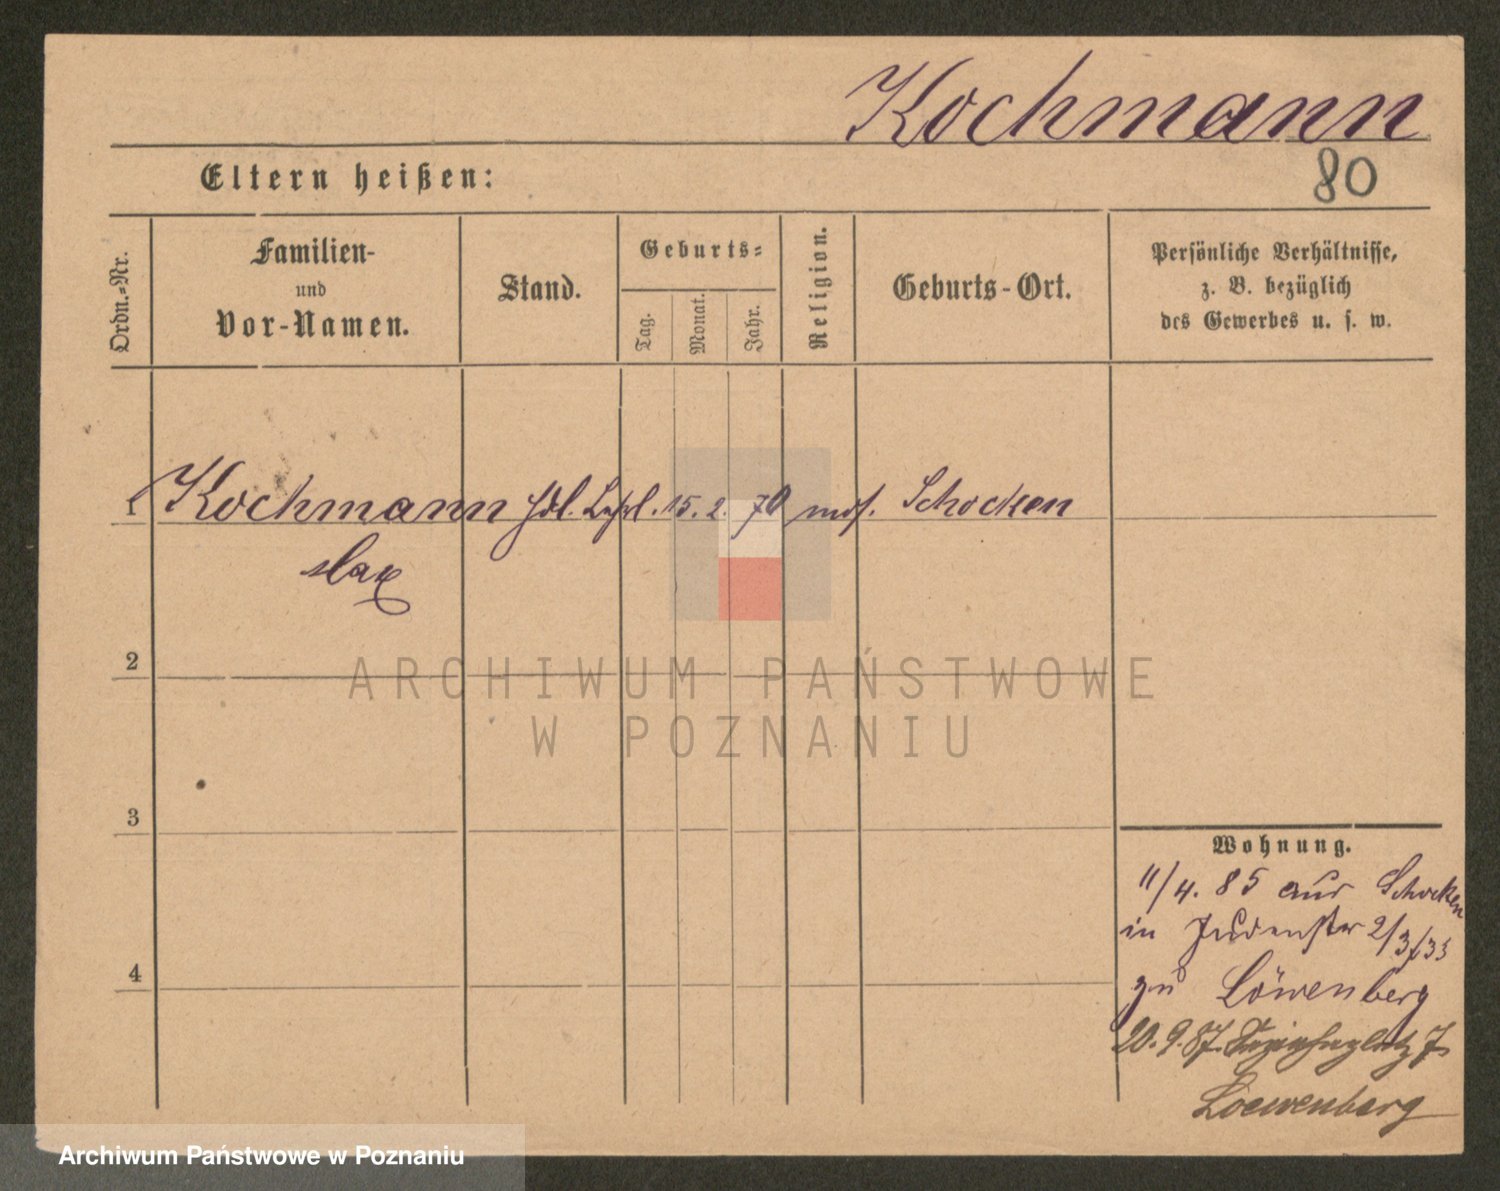 Kochmann
80
Eltern heißen:
Ordn.-Nr.
Familien-
und
Vor-Namen.
Stand.
Geburts-
Tag.
Monat.
Jahr.
Religion.
Geburts-Ort.
Persönliche Verhältnisse,
z. B. bezüglich
des Gewerbes u. s. w.
1 Kochmann Hdl. Lehrl. 15. 2. 70 mos. Schocken
Max
2
ARCHIWUM PAŃSTWOWE
W POZNANIU
3
Wohnung.
11/4. 85 aus Schocken
in Judenstr 2/3/33
4
zu Löwenberg
20. 9. 87. 7
Loewenberg
Archiwum Państwowe w Poznaniu